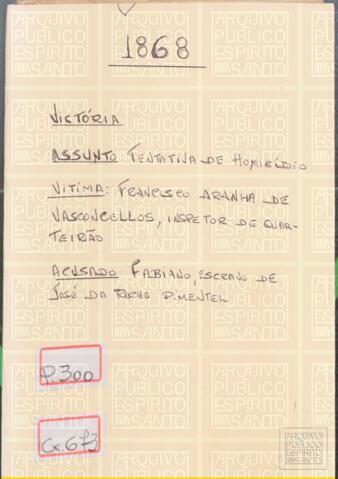 1868
VICTÓRIA
ASSUNTO: TENTATIVA DE HOMICÍDIO
VITIMA: FRANCISCO ARANHA DE
VASCONCELLOS, INSPETOR DE QUAR-
TEIRÃO
ACUSADO: FABIANO, ESCRAVO DE
JOSÉ DA ROCHA PIMENTEL
P.300
Cx 673
ARQUIVO
PÚBLICO
ESPÍRITO
SANTO